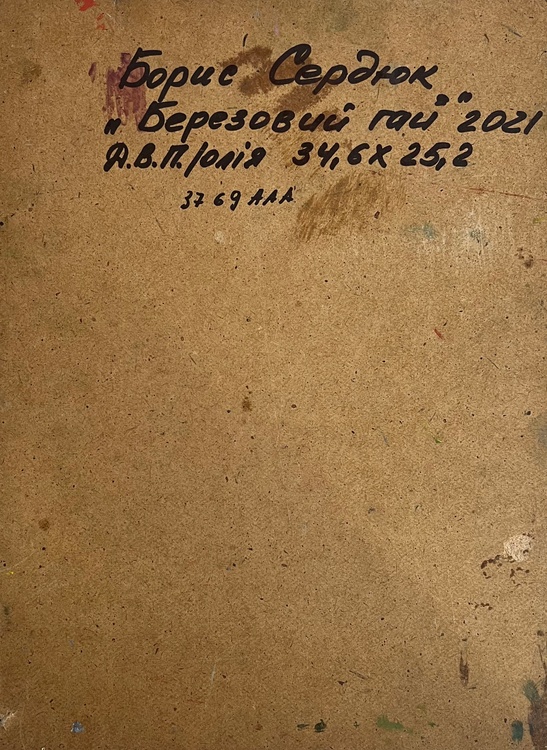 Борис Сердюк
„Березовий гай" 2021
Д.В.П./олія 34,6х25,2
3769 ААА